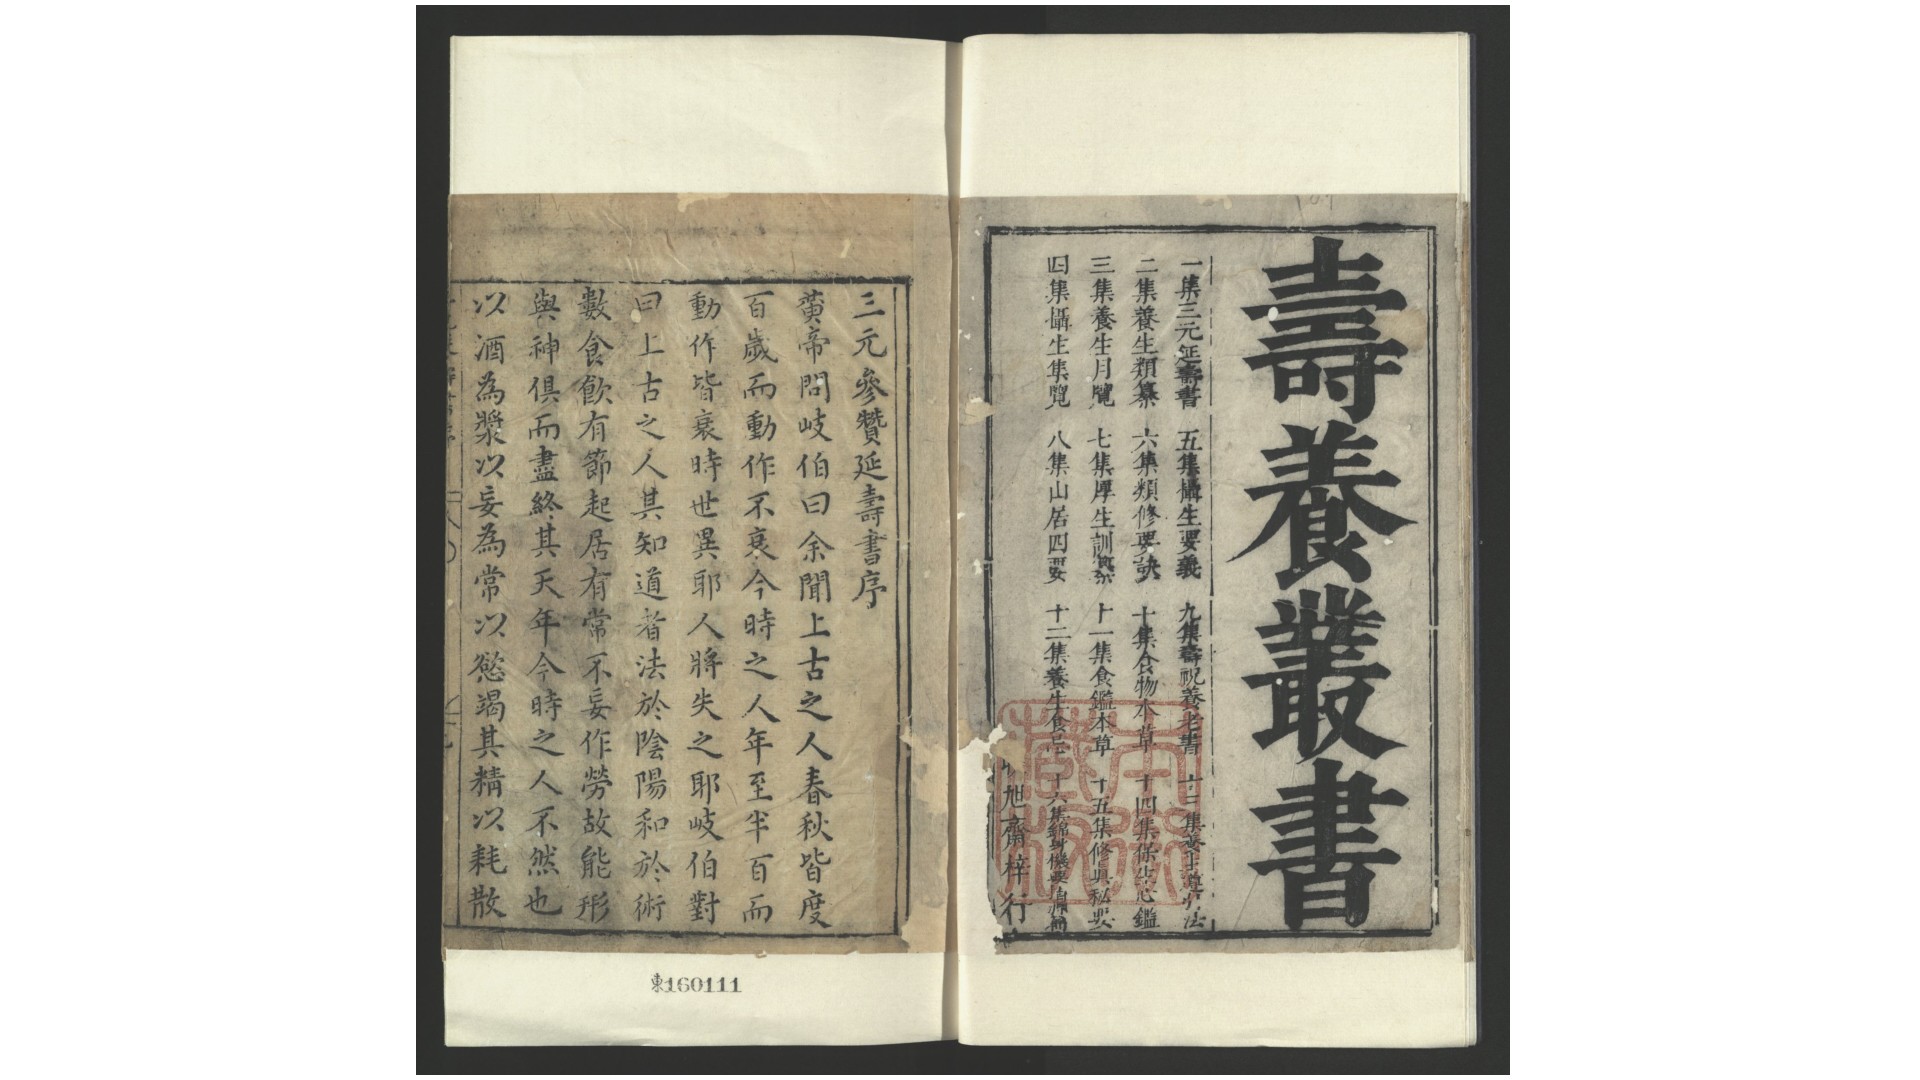 壽養叢書
一集三元延壽書 五集攝生要義 九集壽祝養老書 十三集養生導引法
二集養生類纂 六集類修要訣 十集食物本草 十四集保生心鑑
三集養生月覽 七集厚生訓纂 十一集食鑑本草 十五集修真秘要
四集攝生集覽 八集山居四要 十二集養生食忌 十六集錦身機要
旭齋梓行
三元參贊延壽書序
黃帝問岐伯曰余聞上古之人春秋皆度
百歲而動作不衰今時之人年至半百而
動作皆衰時世異耶人將失之耶岐伯對
曰上古之人其知道者法於陰陽和於術
數食飲有節起居有常不妄作勞故能形
與神俱而盡終其天年今時之人不然也
以酒為漿以妄為常以慾竭其精以耗散
東160111